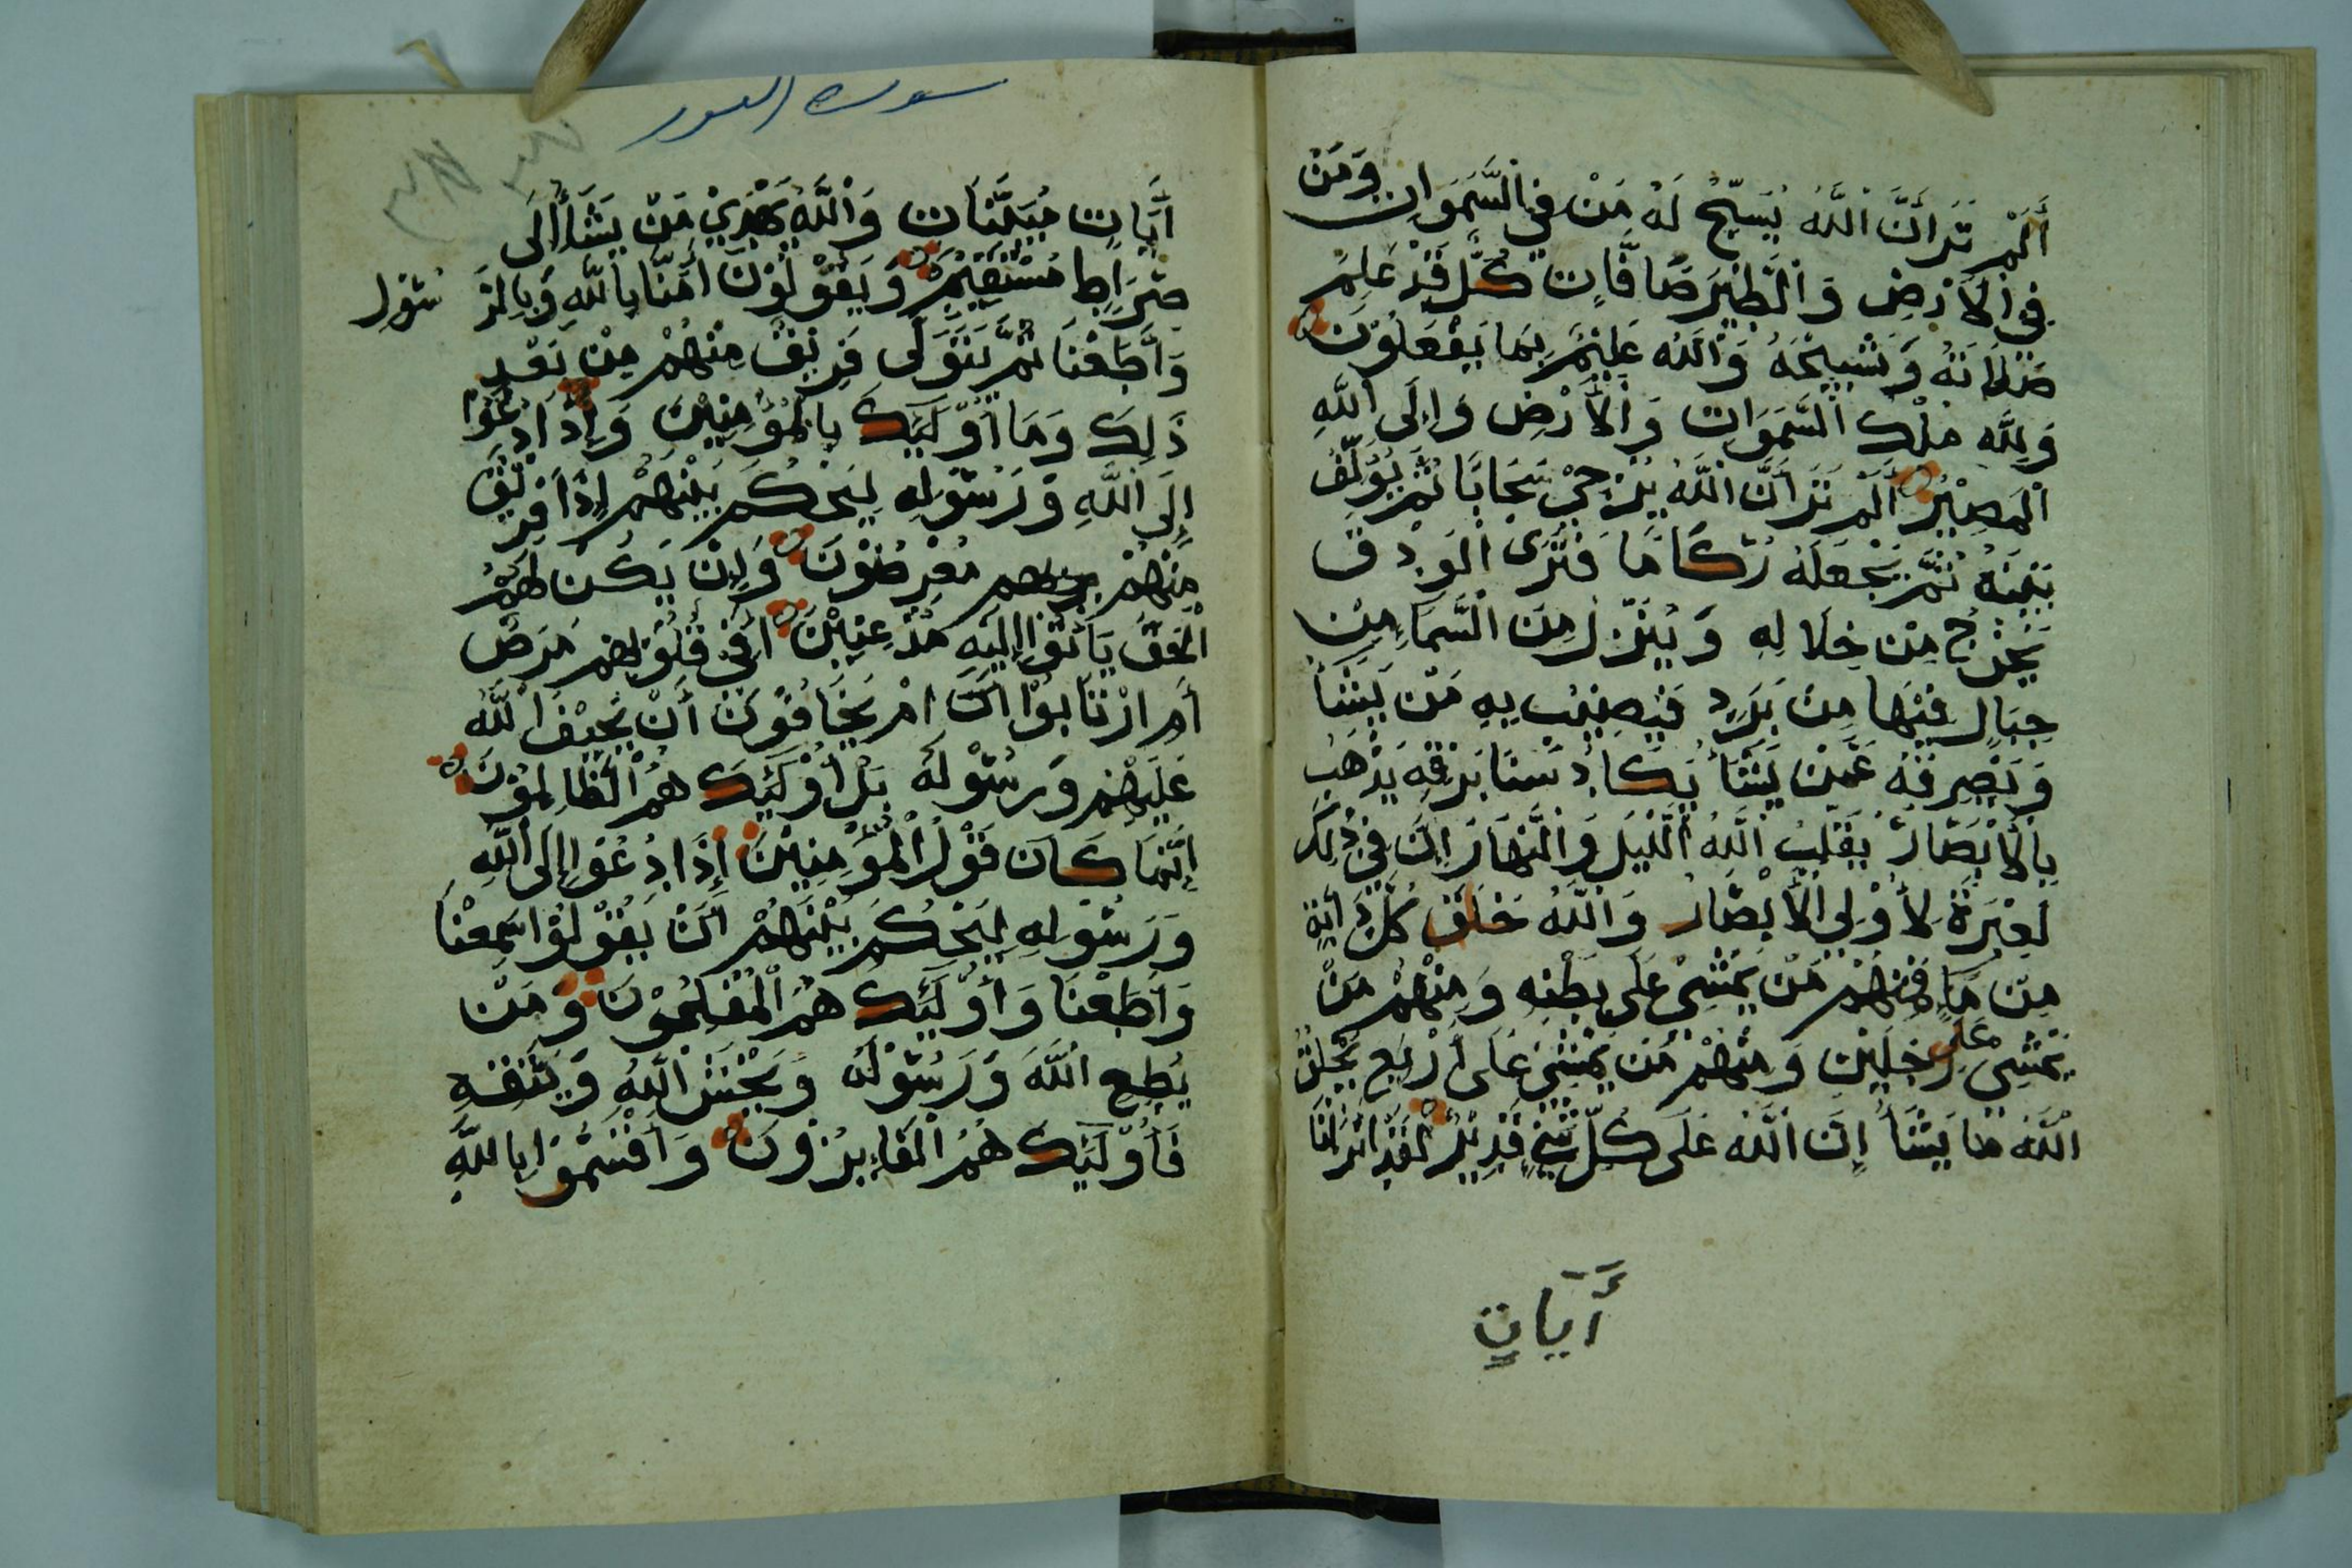 أَلَمْ تَرَ أَنَّ اللَّهَ يُسَبِّحُ لَهُ مَنْ فِي السَّمَوَاتِ وَمَنْ
فِي الْأَرْضِ وَالطَّيْرُ صَافَّاتٍ كُلٌّ قَدْ عَلِمَ
صَلَاتَهُ وَتَسْبِيحَهُ وَاللَّهُ عَلِيمٌ بِمَا يَفْعَلُونَ
وَلِلَّهِ مُلْكُ السَّمَوَاتِ وَالْأَرْضِ وَإِلَى اللَّهِ
الْمَصِيرُ أَلَمْ تَرَ أَنَّ اللَّهَ يُزْجِيْ سَحَابًا ثُمَّ يُؤَلِّفُ
بَيْنَهُ ثُمَّ يَجْعَلُهُ رُكَامًا فَتَرَى الْوَدْقَ
يَخْرُجُ مِنْ خِلَالِهِ وَيُنَزِّلُ مِنَ السَّمَاءِ مِنْ
جِبَالٍ فِيْهَا مِنْ بَرَدٍ فَيُصِيْبُ بِهِ مَنْ يَشَأُ
وَيَصْرِفُهُ عَمَّنْ يَشَأُ يَكَادُ سَنَا بَرْقِهِ يَذْهَبُ
بِالْأَبْصَارِ يُقَلِّبُ اللَّهُ اللَّيْلَ وَالنَّهَارَ إِنَّ فِيْ ذَلِكَ
لَعِبْرَةً لِأُوْلِي الْأَبْصَارِ وَاللَّهُ خَلَقَ كُلَّ دَابَّةٍ
مِنْ مَاءٍ فَمِنْهُمْ مَنْ يَمْشِيْ عَلَى بَطْنِهِ وَمِنْهُمْ مَنْ
يَمْشِيْ عَلَى رِجْلَيْنِ وَمِنْهُمْ مَنْ يَمْشِيْ عَلَى أَرْبَعٍ يَخْلُقُ
اللَّهُ مَا يَشَأُ إِنَّ اللَّهَ عَلَى كُلِّ شَيْءٍ قَدِيْرٌ لَقَدْ أَنْزَلْنَا
أَيَاتٍ
سورة النور
أَيَاتٍ مُبَيِّنَاتٍ وَاللَّهُ يَهْدِيْ مَنْ يَشَأُ إِلَى
صِرَاطٍ مُسْتَقِيْمٍ وَيَقُوْلُوْنَ أَمَنَّا بِاللَّهِ وَبِالرَّ سُوْلِ
وَأَطَعْنَا ثُمَّ يَتَوَلَّى فَرِيْقٌ مِنْهُمْ مِنْ بَعْدِ
ذَلِكَ وَمَا أُوْلَئِكَ بِالْمُؤْمِنِيْنَ وَإِذَا دُعُوْا
إِلَى اللَّهِ وَرَسُوْلِهِ لِيَحْكُمَ بَيْنَهُمْ إِذَا فَرِيْقٌ
مِنْهُمْ مُعْرِضُوْنَ وَإِنْ يَكُنْ لَهُمُ
الْحَقُّ يَأْتُوْا إِلَيْهِ مُذْعِنِيْنَ أَفِيْ قُلُوْبِهِمْ مَرَضٌ
أَمِ ارْتَابُوْا أَمْ يَخَافُوْنَ أَنْ يَحِيْفَ اللَّهُ
عَلَيْهِمْ وَرَسُوْلُهُ بَلْ أُوْلَئِكَ هُمُ الظَّالِمُوْنَ
إِنَّمَا كَانَ قَوْلَ الْمُؤْمِنِيْنَ إِذَا دُعُوْا إِلَى اللَّهِ
وَرَسُوْلِهِ لِيَحْكُمَ بَيْنَهُمْ أَنْ يَقُوْلُوْا سَمِعْنَا
وَأَطَعْنَا وَأُوْلَئِكَ هُمُ الْمُفْلِحُوْنَ وَمَنْ
يُطِعِ اللَّهَ وَرَسُوْلَهُ وَيَخْشَ اللَّهَ وَيَتَّقْهِ
فَأُوْلَئِكَ هُمُ الْفَاءِيزُوْنَ وَأَقْسَمُوْا بِاللَّهِ